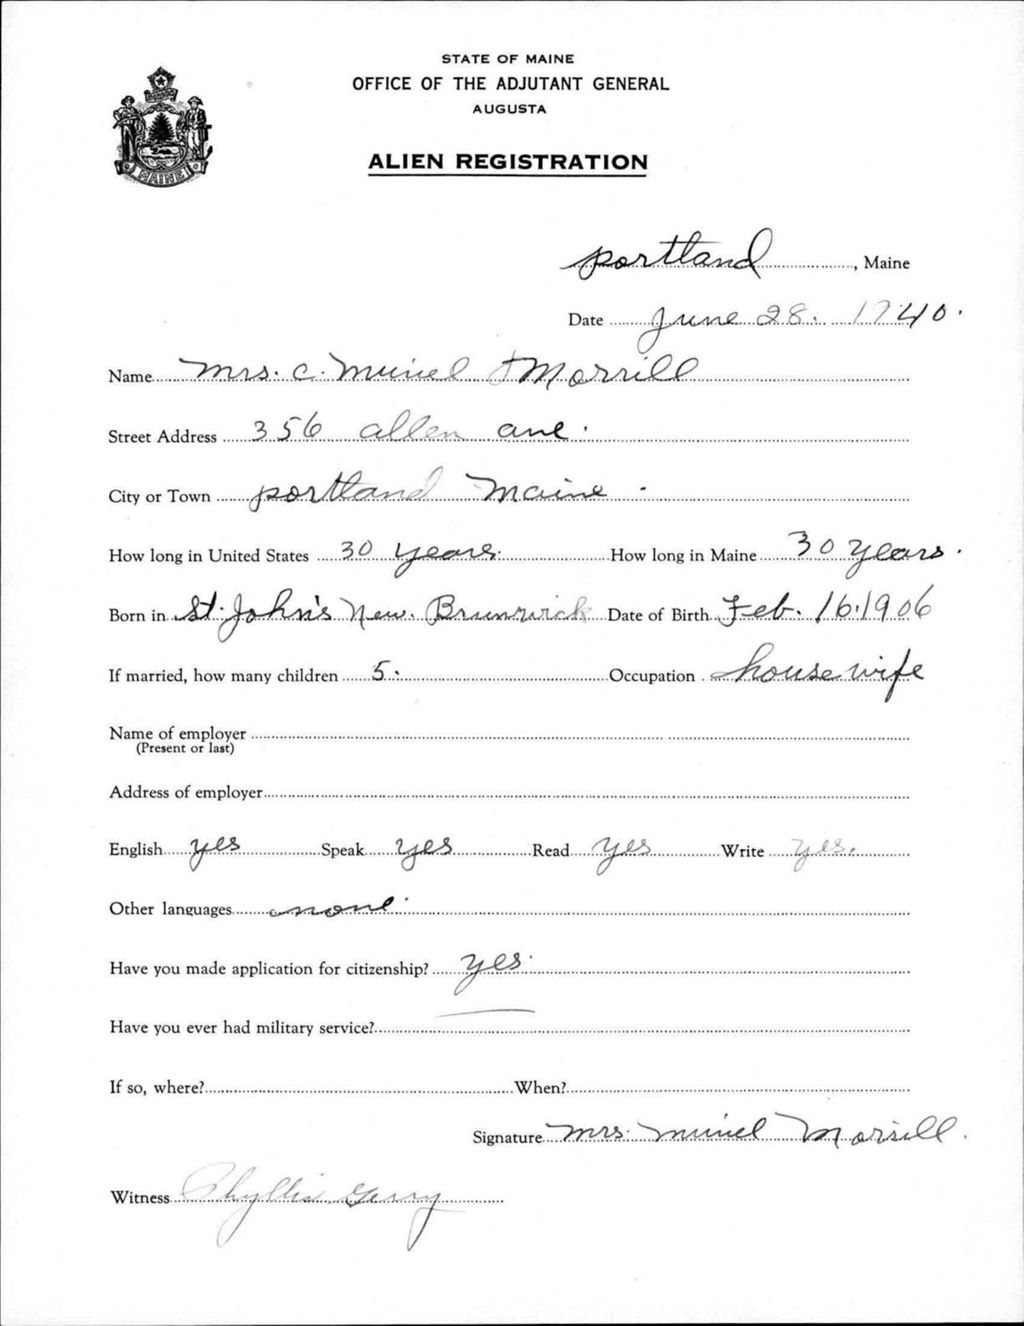 STATE OF MAINE
OFFICE OF THE ADJUTANT GENERAL
AUGUSTA
ALIEN REGISTRATION
MAINE
portland, Maine
Date June 28. 1940.
Name Mrs. C. Muriel Morrill
Street Address 356 allen ave.
City or Town portland Maine.
How long in United States 30 years. How long in Maine 30 years.
Born in St. John's New. Brunswick Date of Birth Feb. 16. 1906
If married, how many children 5. Occupation housewife
Name of employer
(Present or last)
Address of employer
English yes Speak yes Read yes Write yes.
Other languages none.
Have you made application for citizenship? yes.
Have you ever had military service?
If so, where? When?
Signature Mrs. Muriel Morrill.
Witness Phyllis Gerry